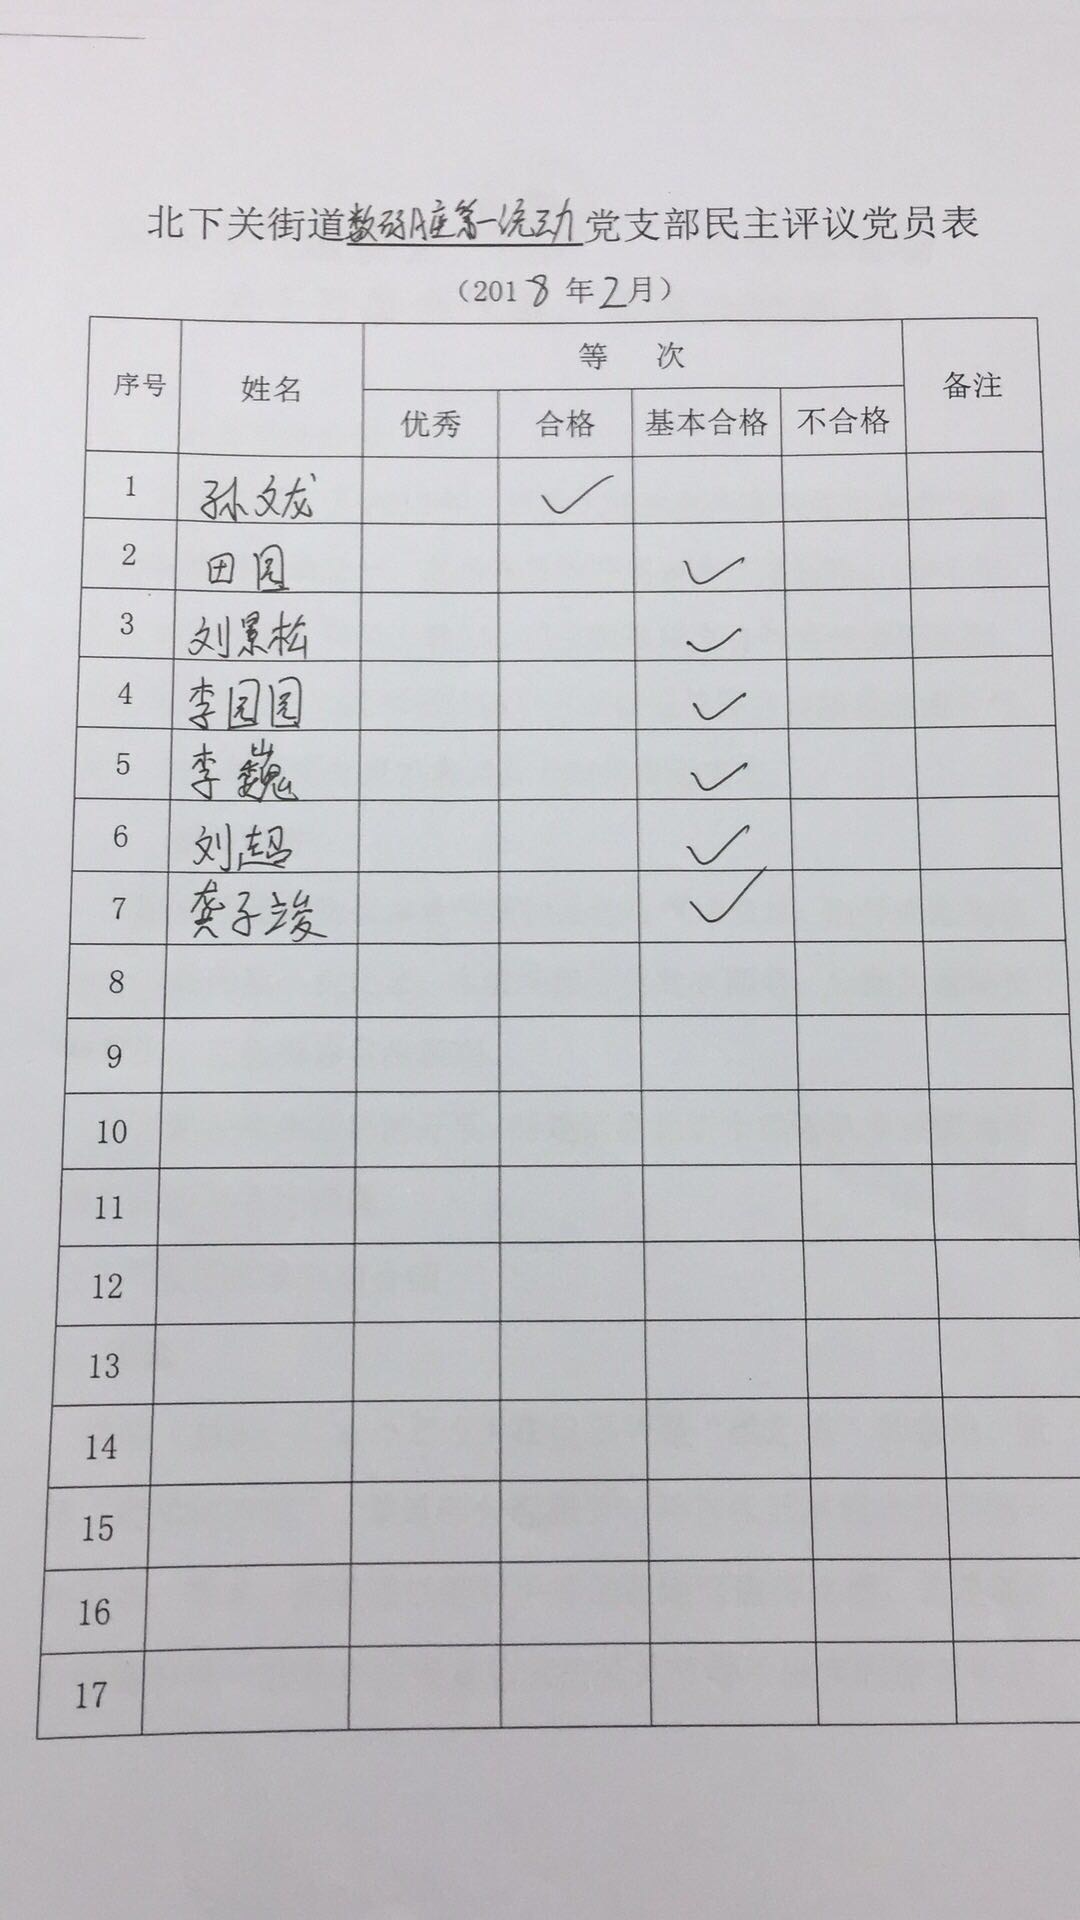 北下关街道数码A座第一流动党支部民主评议党员表
(2018年2月)
序号 姓名 等 次 备注
优秀 合格 基本合格 不合格
1 孙文龙 ✓
2 田园 ✓
3 刘景松 ✓
4 李园园 ✓
5 李巍 ✓
6 刘超 ✓
7 龚子竣 ✓
8
9
10
11
12
13
14
15
16
17